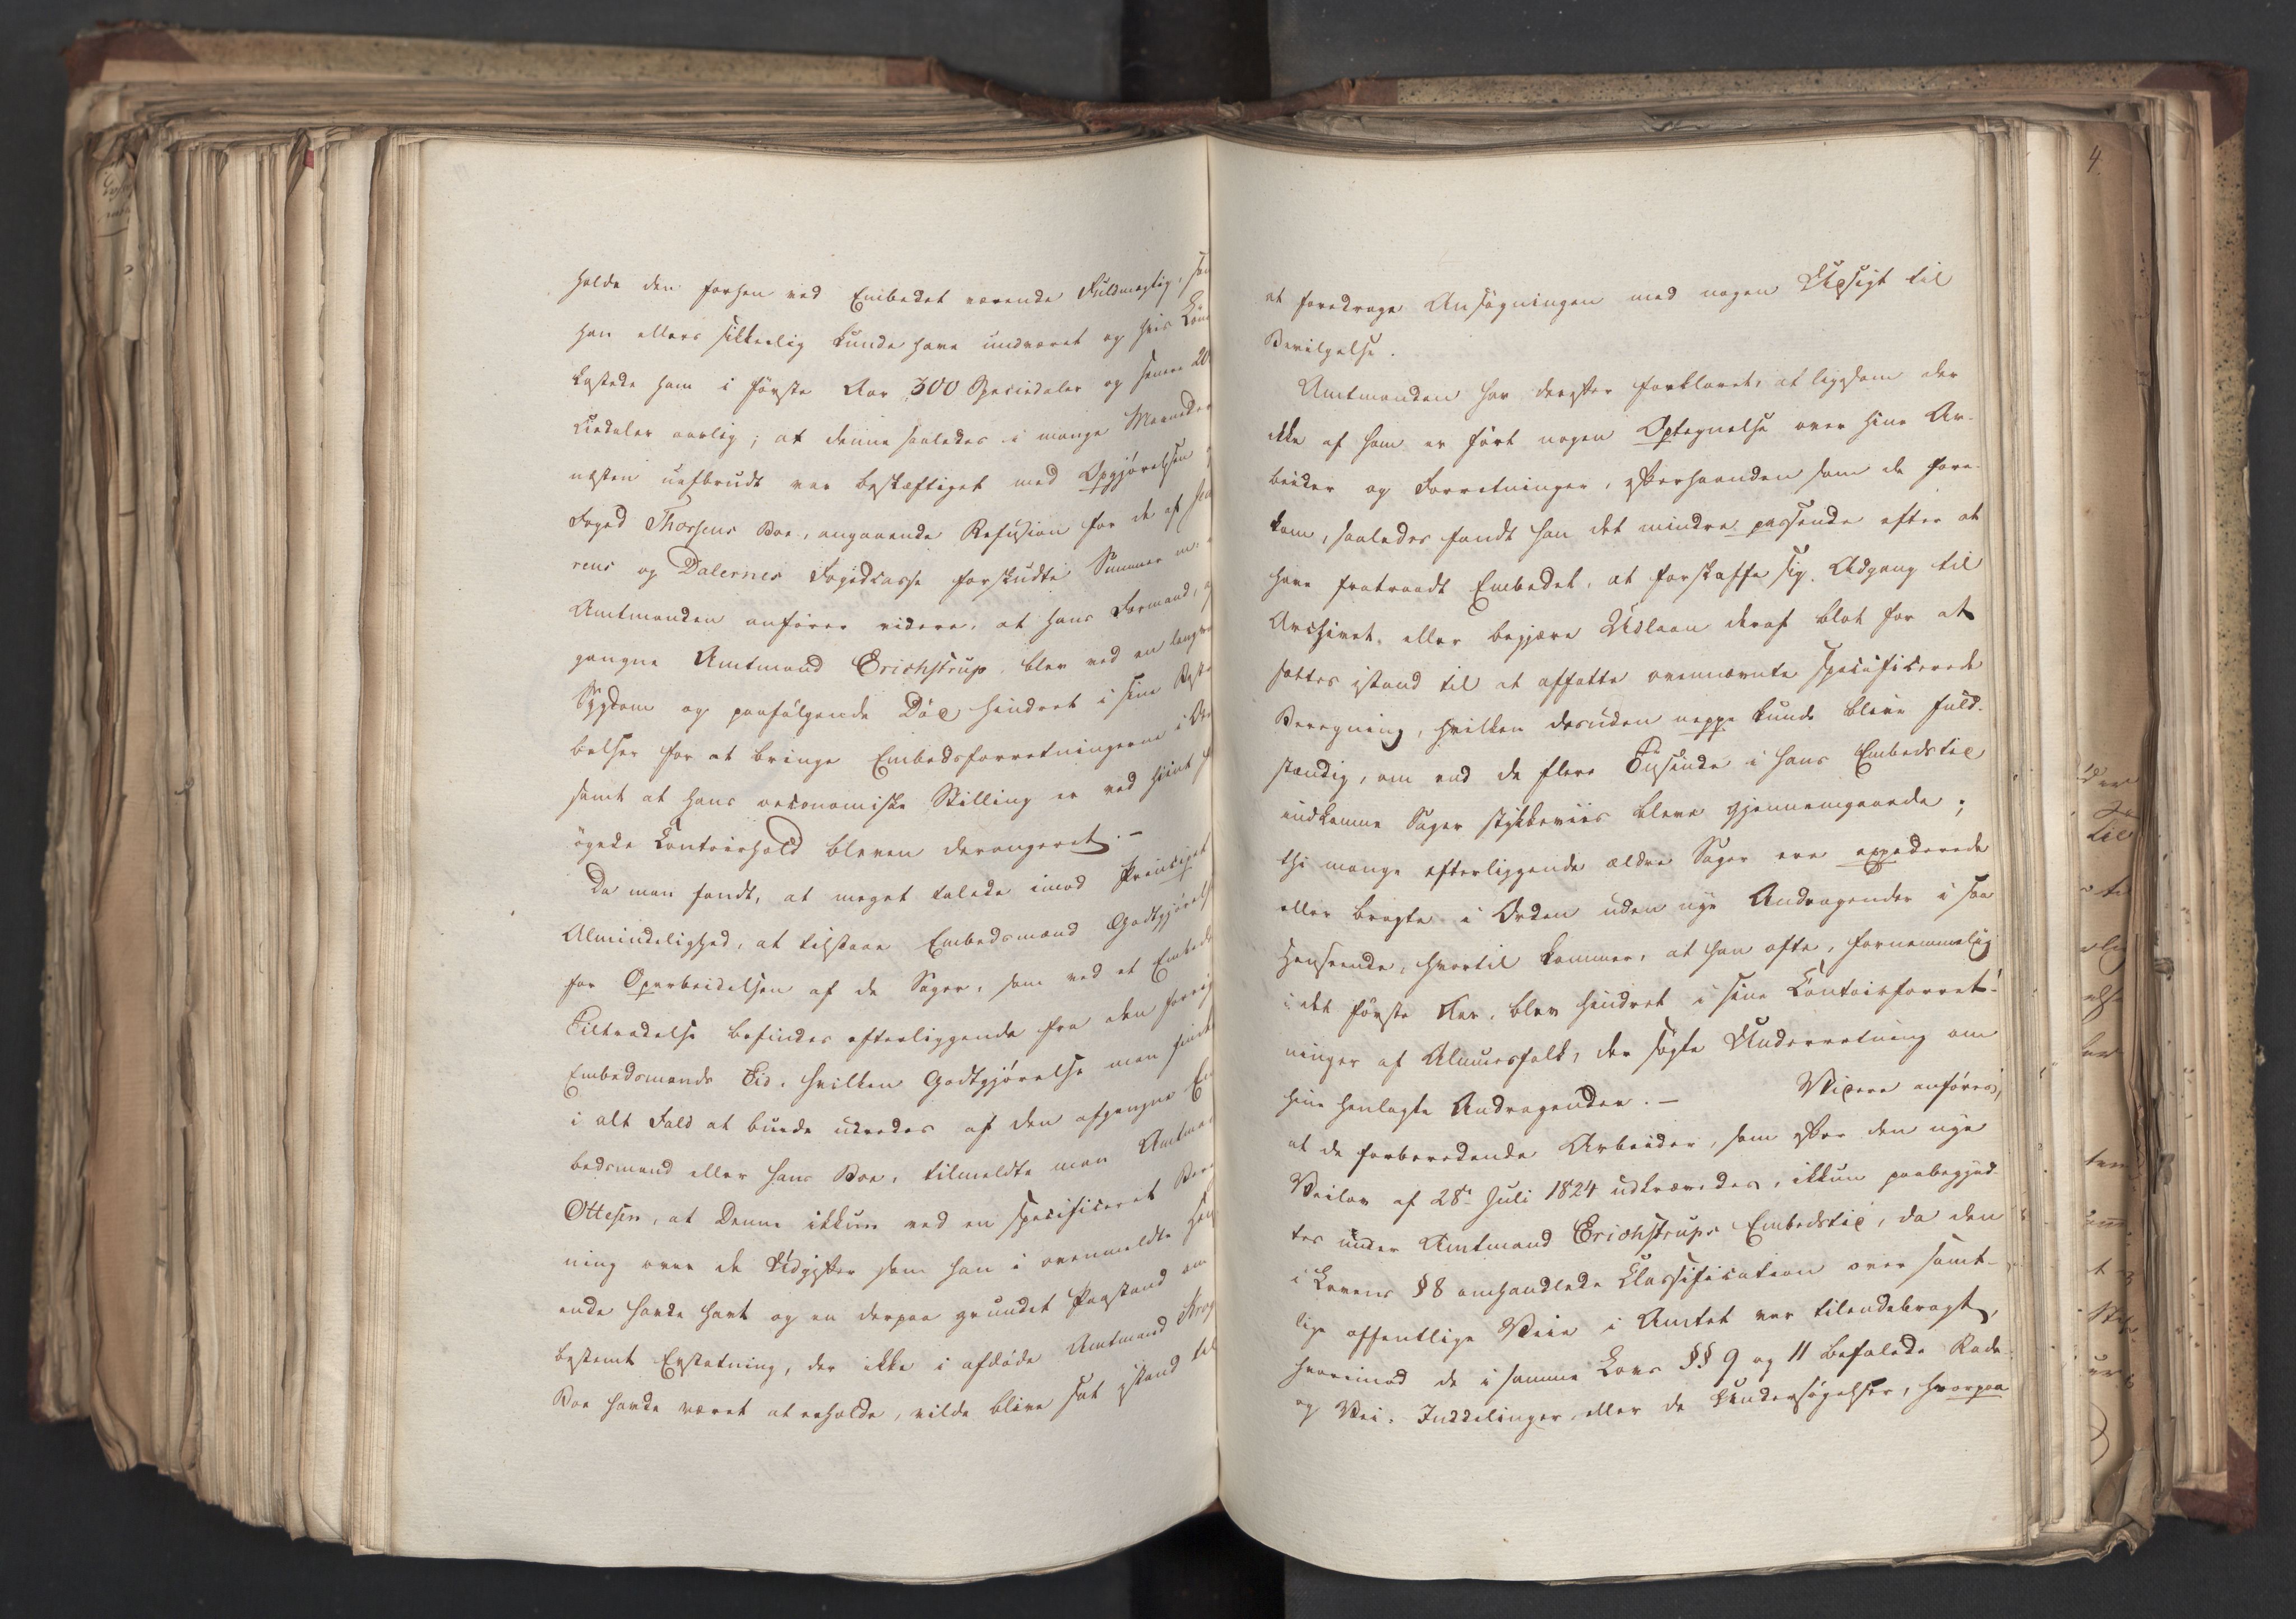 holde den forhen ved Embedet værende Fuldmægtig, som
han ellers sikkerlig kunde have undværet og hvis Løn
kostede ham i første Aar 300 Speciedaler og senere 20
ciedaler aarlig; at denne saaledes i mange Maaneder
næsten uafbrudt var beskæftiget med Opgjørelsen
Foged Thorsens Boe, angaaende Refusion for de af
rens og Dalernes Fogedcasse forskudte Summer m.
Amtmanden anfører videre, at hans Formand,
gangne Amtmand Erichstrup blev ved en langva
Sygdom og paafølgende Död hindret i sine Bestræ
belser for at bringe Embedsforretningerne i Or
samt at hans oeconomiske Stilling er ved hiint
øgede Contoirhold bleven derangeret. -
Da man fandt, at meget talede imod Principet
Almindelighed, at tilstaae Embedsmænd Godtgjørels
for Oparbeidelsen af de Sager, som ved et Embeds
Tiltrædelse befindes efterliggende fra den forrig
Embedsmands Tid, hvilken Godtgjørelse man fandt
i alt Fald at burde udredes af den afgangne Em
bedsmand eller hans Boe, tilmeldte man Amtmand
Ottesen, at Denne ikkun ved en specificeret Bereg
ning over de Udgifter som han i ovenmeldte Hen
ende havde havt og en derpaa grundet Paastand om
bestemt Erstatning, der ikke i afdøde Amtmand
Boe havde været at erholde, vilde blive sat istand til
at foredrage Ansøgningen med nogen Udsigt til
Bevilgelse.
Amtmanden har derefter forklaret, at ligesom der
ikke af ham er ført nogen Optegnelse over hine Ar-
beider og Forretninger, efterhaanden som de fore-
kom, saaledes fandt han det mindre passende efter at
have fratraadt Embedet, at forskaffe sig Adgang til
Archivet, eller begjære Udlaan deraf blot for at
sættes istand til at affatte ovennævnte specificerede
Beregning, hvilken desuden neppe kunde blive fuld-
stændig, om end de flere Tusinde i hans Embedstid
indkomne Sager stykkeviis bleve gjennemgaaede;
thi mange efterliggende ældre Sager ere expederede
eller bragte i Orden uden nye Andragender i saa
Henseende, hvortil kommer, at han ofte, fornemmelig
i det første Aar, blev hindret i sine Contoirforret-
ninger af Almuesfolk, der søgte Underretning om
hine henlagte Andragender. - Videre anføres,
at de forberedende Arbeider, som efter den nye
Veilov af 28de Juli 1824 udkrævedes, ikkun paabegynd-
tes under Amtmand Erichstrups Embedstid, da den
i Lovens § 8 omhandlede Classification over samt-
lige offentlige Veie i Amtet var tilendebragt,
hvorimod de i samme Lovs §§ 9 og 11 befalede Rode-
og Vei-Inddelinger, eller de Undersøgelser, hvorpaa
4.